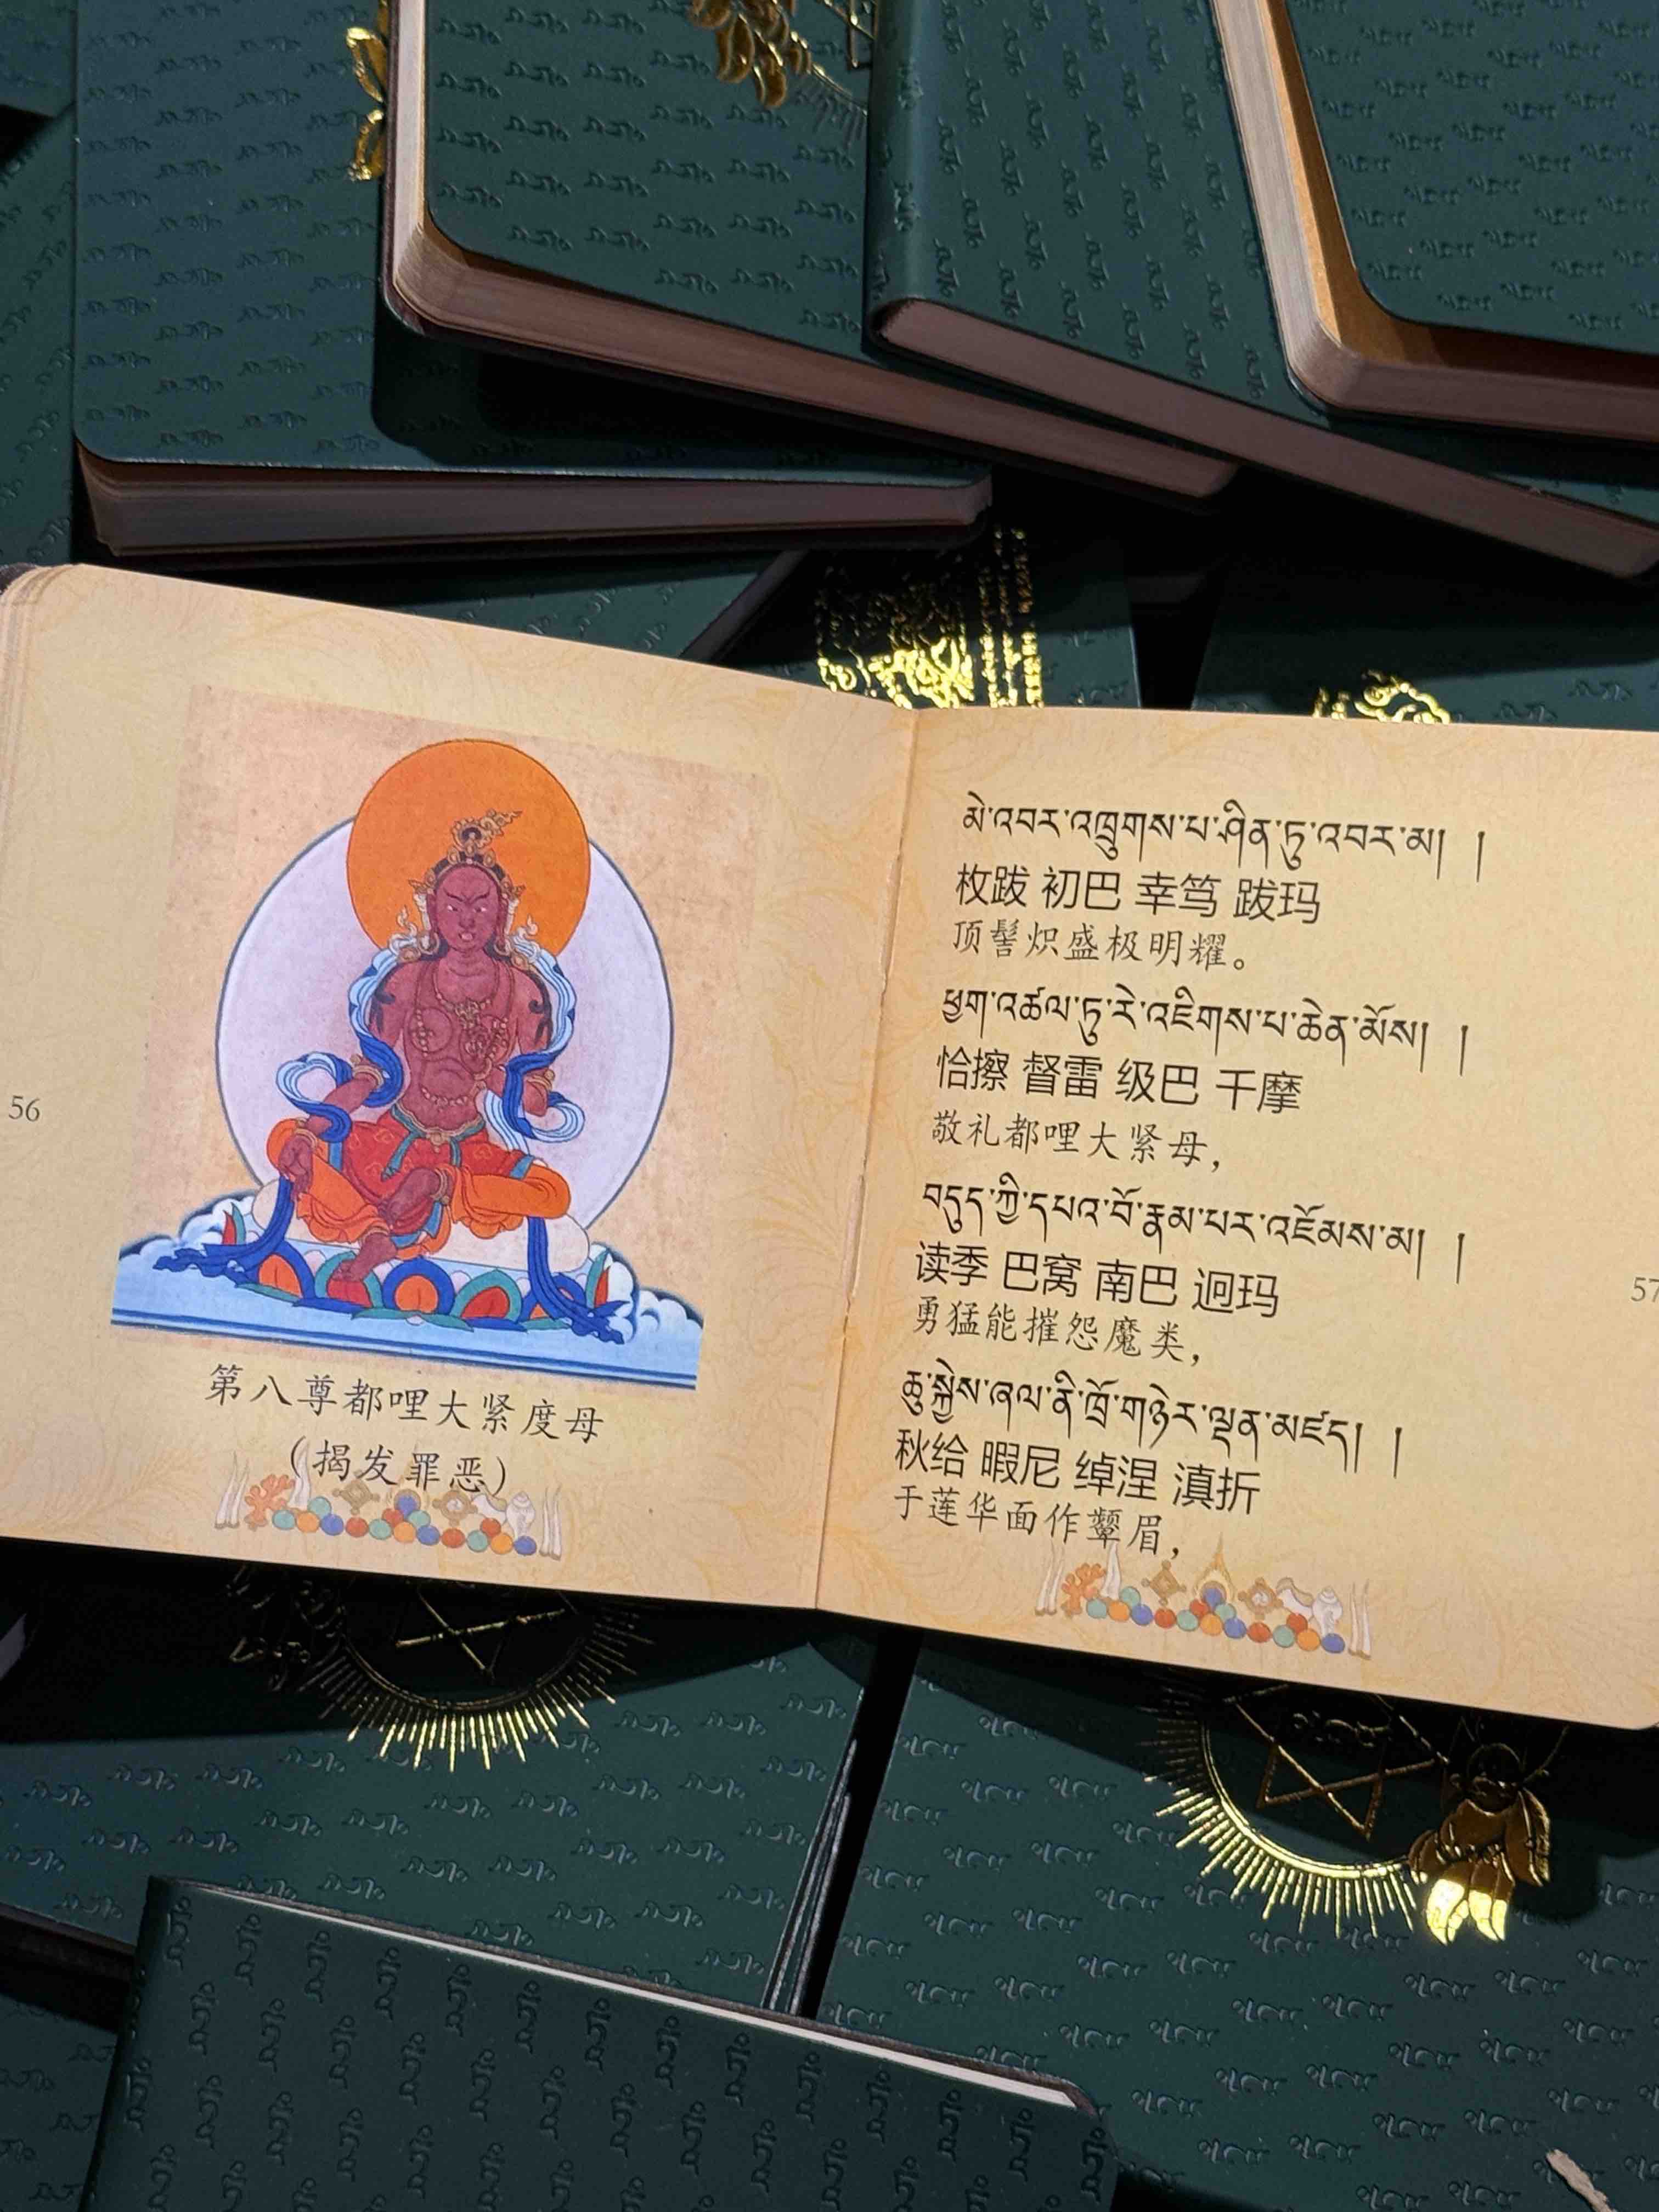 56
第八尊都哩大紧度母
（揭发罪恶）
མེ་འབར་འཁྲུགས་པ་ཤིན་ཏུ་འབར་མ། །
枚跋 初巴 幸笃 跋玛
顶髻炽盛极明耀。
ཕྱག་འཚལ་ཏུ་རེ་འཇིགས་པ་ཆེན་མོས། །
恰擦 督雷 级巴 千摩
敬礼都哩大紧母，
བདུད་ཀྱི་དཔའ་བོ་རྣམ་པར་འཇོམས་མ། །
读季 巴窝 南巴 迥玛
勇猛能摧怨魔类，
ཆུ་སྐྱེས་ཞལ་ནི་ཁྲོ་གཉེར་ལྡན་མཛད། །
秋给 暇尼 绰涅 滇折
于莲华面作颦眉，
57